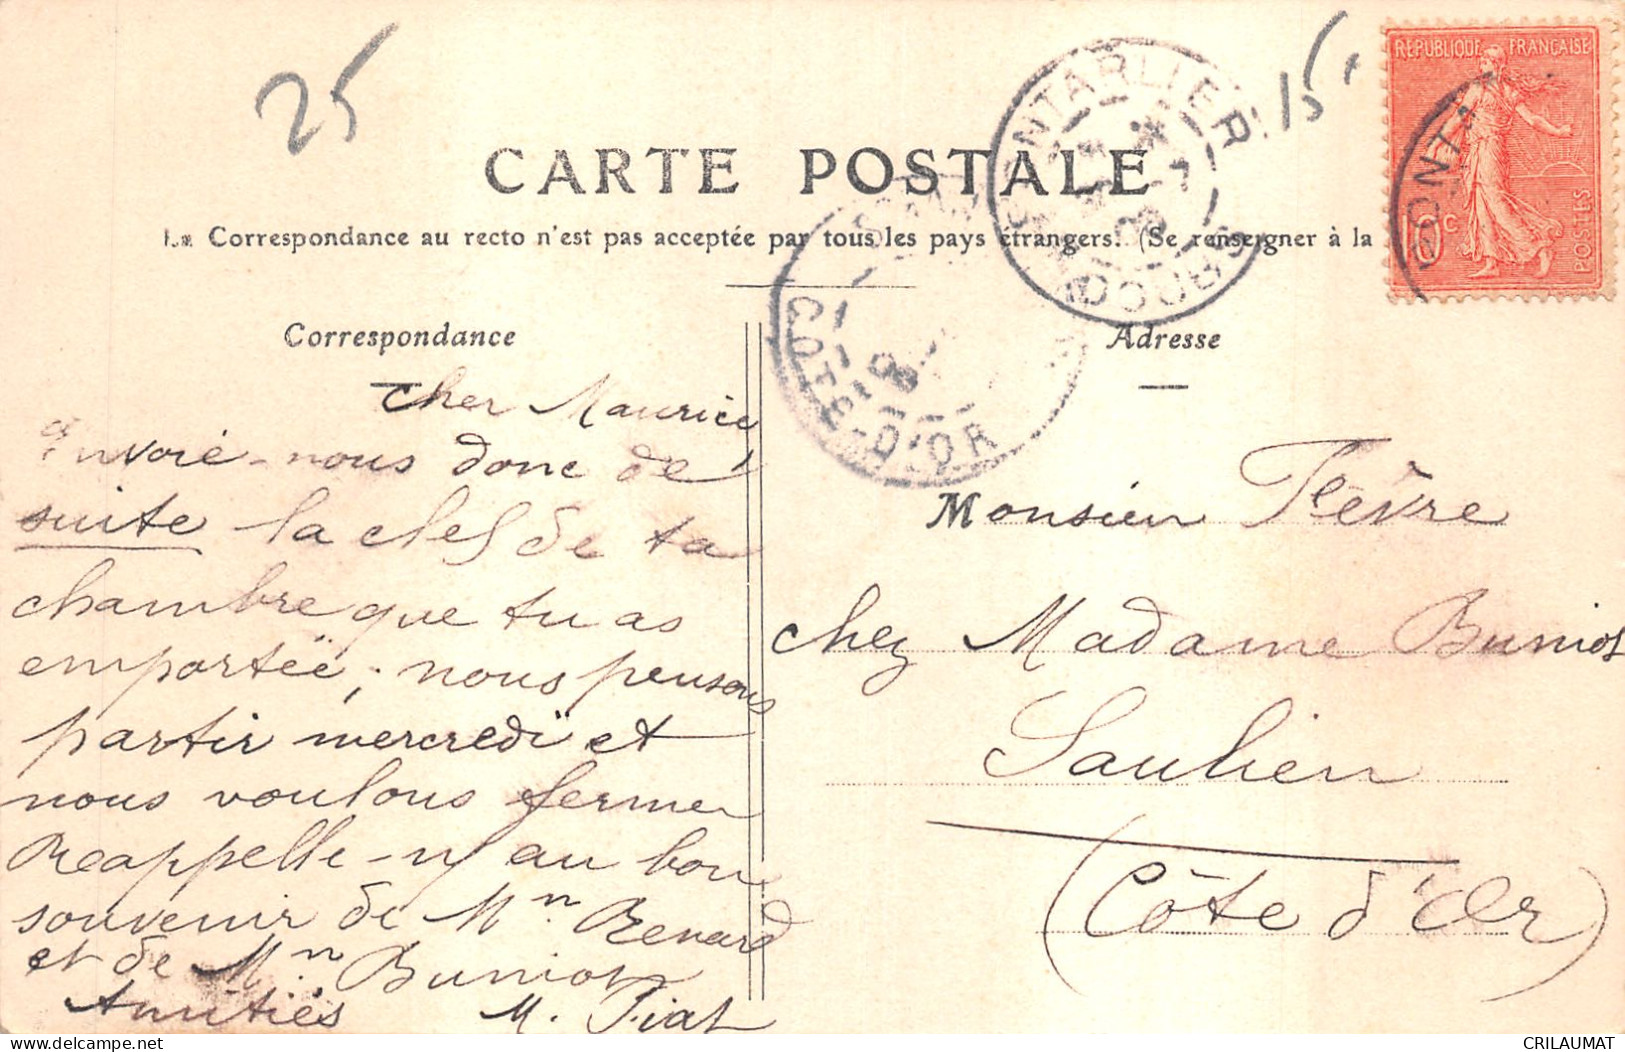 25
15
REPUBLIQUE FRANÇAISE
10c
POSTES
PONTA
PONTARLIER
DOUBS
CÔTE-D'OR
CARTE POSTALE
La Correspondance au recto n'est pas acceptée par tous les pays étrangers. (Se renseigner à la
Correspondance
Adresse
Cher Maurice
Envoie-nous donc de
suite la clef de ta
chambre que tu as
emportée ; nous pensons
partir mercredi et
nous voulons fermer
Reappelle-n/ au bon
souvenir de Mn. Renard
et de Mn Buniot
Amitiés M. Fiat
Monsieur Fèvre
chez Madame Buniot
Saulieu
(Côte d'Or)
CRILAUMAT